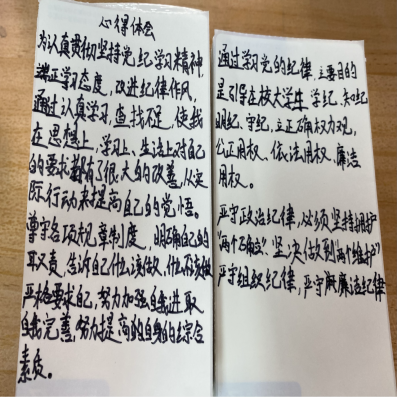 心得体会
为认真贯彻坚持党纪学习精神,
端正学习态度,改进纪律作风,
通过认真学习,查找不足,使我
在思想上,学习上、生活上对自己
的要求都有了很大的改善,从实
际行动来提高自己的觉悟。
遵守各项规章制度,明确自己的
职责,告诉自己什么该做,什么不该做
严格要求自己,努力加强自我进取
自我完善,努力提高的自身的综合
素质。
通过学习党的纪律,主要目的
是引导在校大学生学纪、知纪
明纪、守纪,立正确权力观,
公正用权、依法用权、廉洁
用权。
严守政治纪律,必须坚持拥护
“两个确立”坚决做到“两个维护”
严守组织纪律,严守廉洁纪律